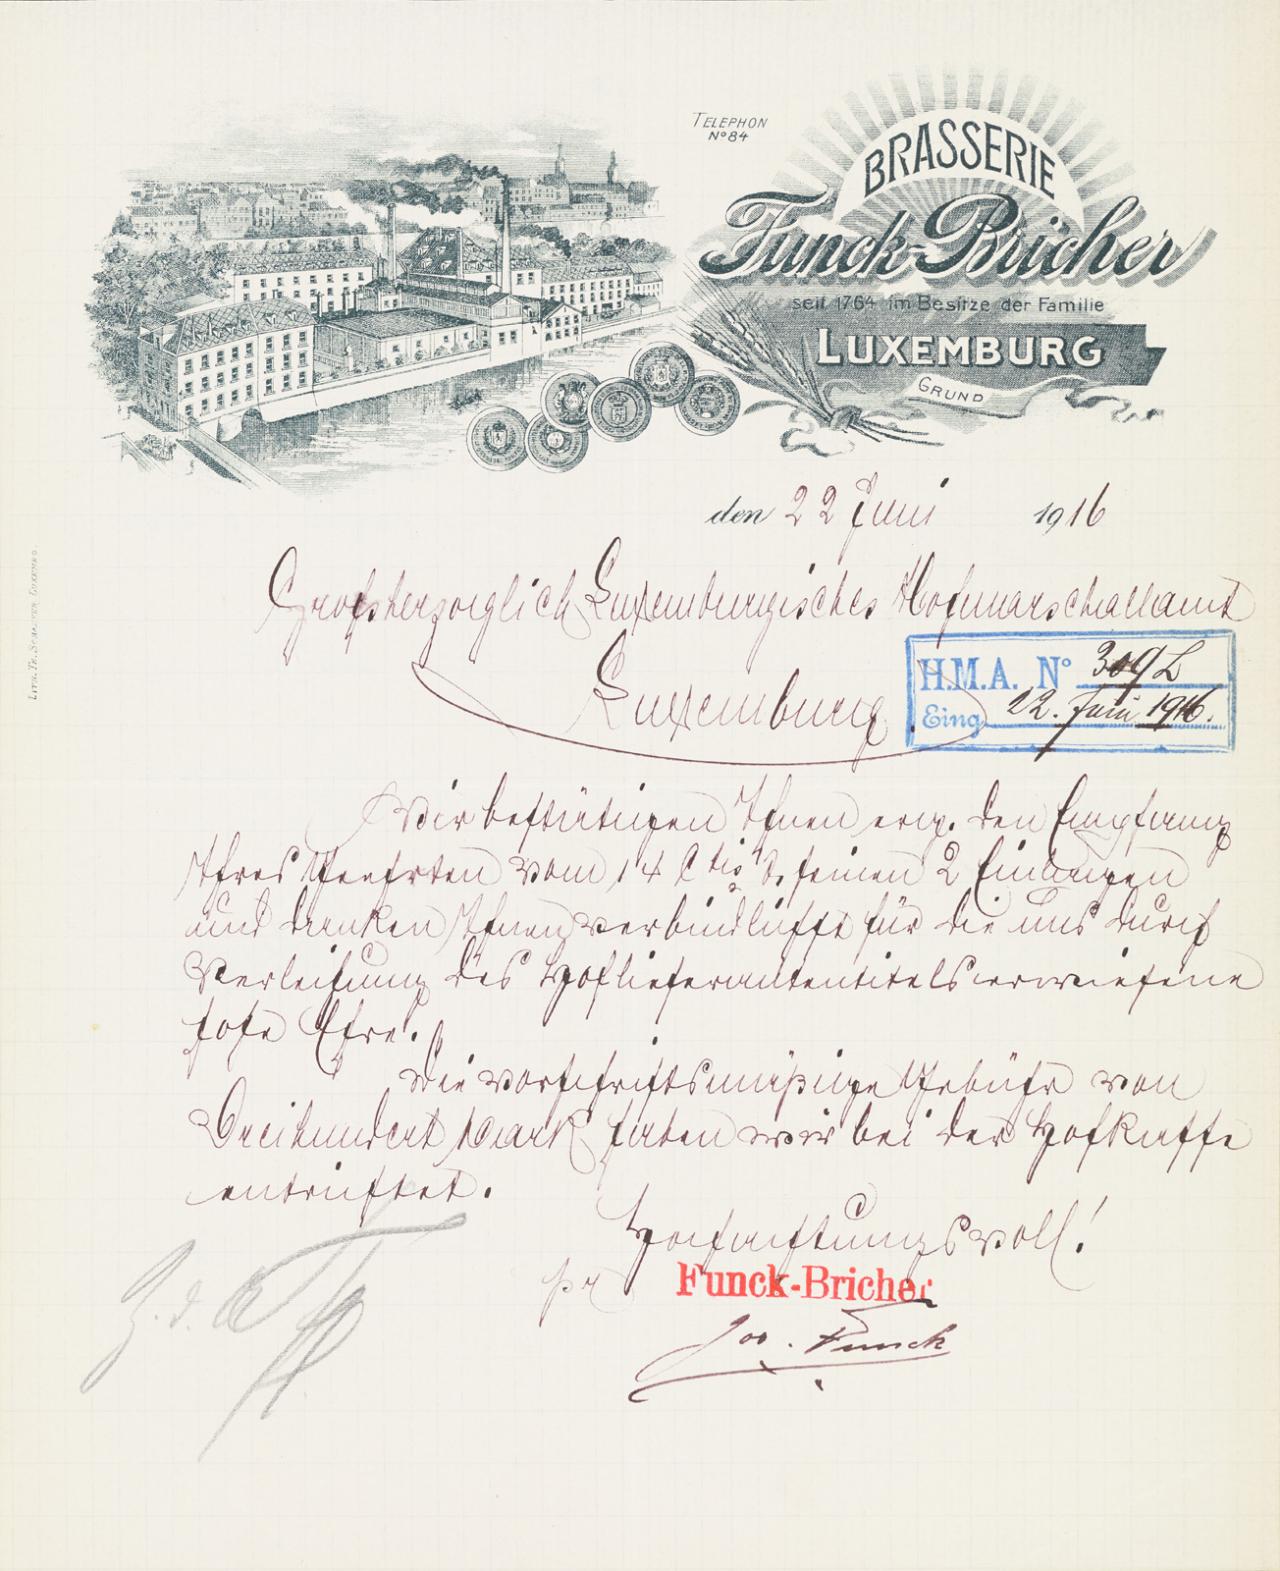 TELEPHON
No 84
BRASSERIE
Funck-Bricher
seit 1764 im Besitze der Familie
LUXEMBURG
GRUND
den 22 Juni 1916
Grossherzoglich Luxemburgisches Hofmarschallamt
Luxemburg
H.M.A. No 309 L
Eing. 22. Juni 1916.
LITH. TH. SCHAEFER, LUXEMBG.
Wir bestätigen Ihnen erg. den Empfang
Ihres Geehrten vom 14 & seinen 2 Einlagen
und danken Ihnen verbindlichst für die uns durch
Verleihung des Hoflieferantentitels erwiesene
hohe Ehre.
Die vorschriftsmässige Gebühr von
Dreihundert Mark haben wir bei der Hofkasse
entrichtet.
Hochachtungsvoll!
pr Funck-Bricher
Jos. Funck
Z. d. A